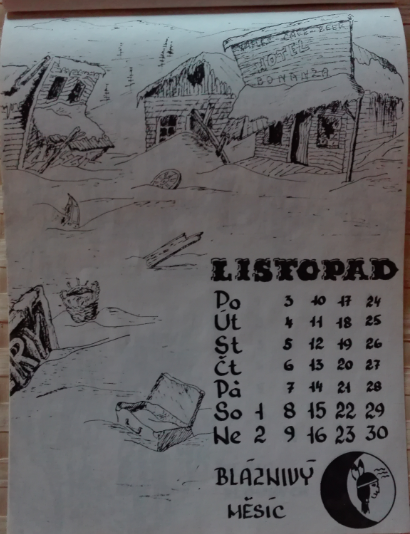 HOTEL
BONANZA
LISTOPAD
Po 3 10 17 24
Út 4 11 18 25
St 5 12 19 26
Čt 6 13 20 27
Pá 7 14 21 28
So 1 8 15 22 29
Ne 2 9 16 23 30
BLÁZNIVÝ
MĚSÍC